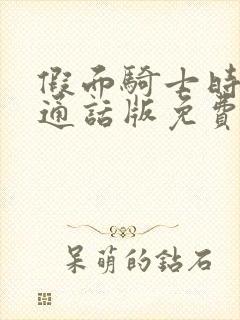 假而騎士時
通話版免費
呆萌的鉆石